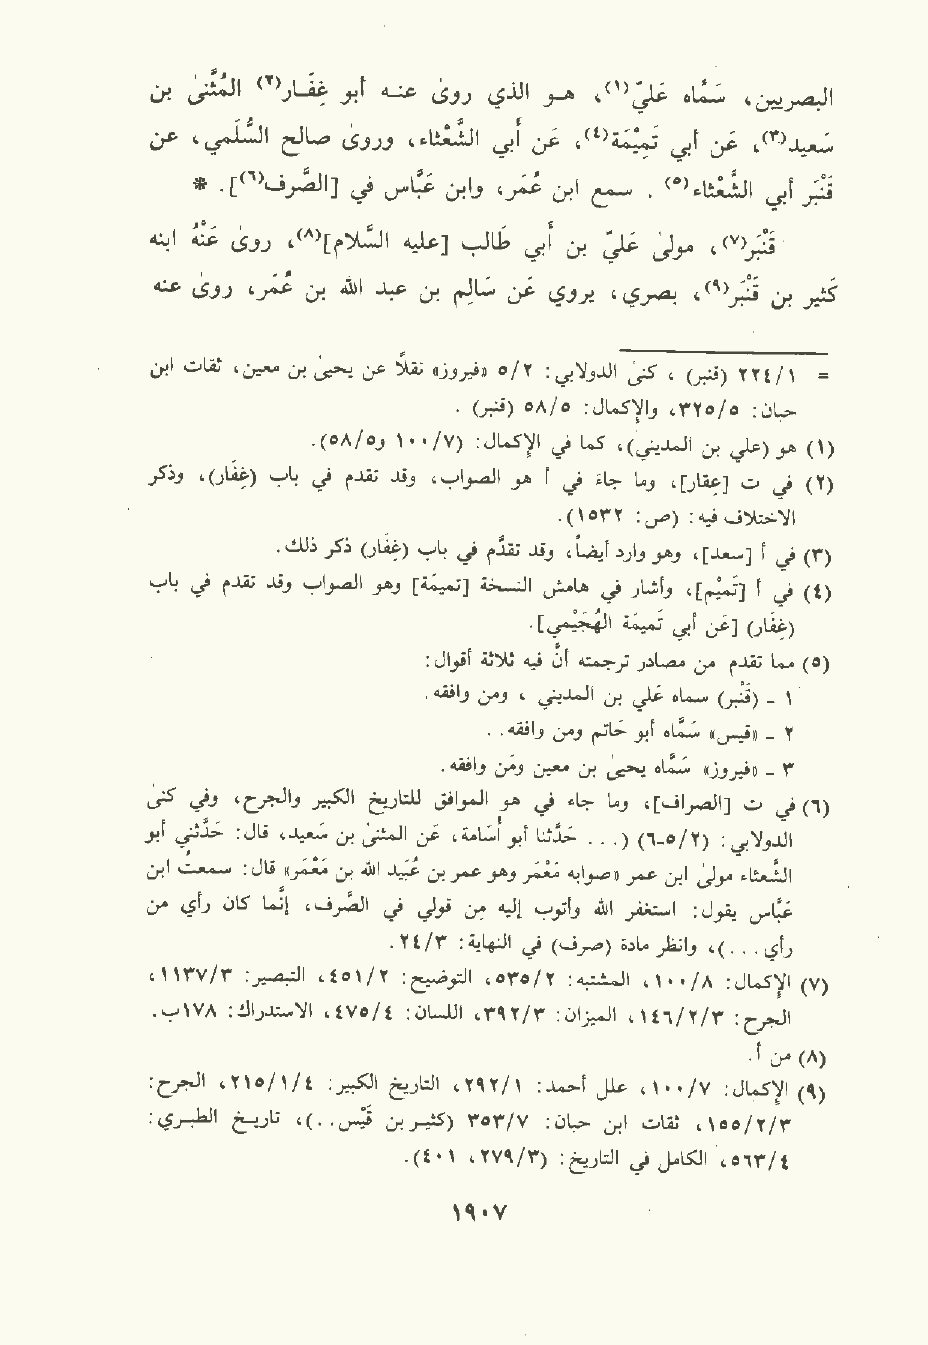 البصريين، سَمّاه عَليّ(١)، هـو الذي روىٰ عنـه أبو غِفَـار(٢) المُثَنىٰ بن
سَعيد(٣)، عَن أبي تَمِيْمَة(٤)، عَن أبي الشَّعْثاء، وروىٰ صالح السُّلَمي، عن
قَنْبَر أبي الشَّعْثاء(٥) . سمع ابن عُمَر، وابن عَبَّاس في [الصَّرف(٦)]. *
قَنْبَر(٧)، مولىٰ عَليّ بن أبي طَالب [عليه السَّلام](٨)، روىٰ عَنْهُ ابنه
كَثير بن قَنْبَر(٩)، بصري، يروي عَن سَالِم بن عبد الله بن عُمَر، روىٰ عنه
= ٢٢٤/١ (قنبر) ، كنىٰ الدولابي: ٥/٢ «فيروز» نقلاً عن يحيىٰ بن معين، ثقات ابن
حبان: ٣٢٥/٥، والإكمال: ٥٨/٥ (قنبر) .
(١) هو (علي بن المديني)، كما في الإكمال: (١٠٠/٧ و٥٨/٥).
(٢) في ت [عقار]، وما جاء في أ هو الصواب، وقد تقدم في باب (غِفَار)، وذكر
الاختلاف فيه: (ص: ١٥٣٢).
(٣) في أ [سعد]، وهو وارد أيضاً، وقد تقدّم في باب (غِفَار) ذكر ذلك.
(٤) في أ [تَمِيْم]، وأشار في هامش النسخة [تميمَة] وهو الصواب وقد تقدم في باب
(غِفَار) [عَن أبي تَميمَة الهُجَيْمي].
(٥) مما تقدم من مصادر ترجمته أنّ فيه ثلاثة أقوال:
١ - (قَنْبر) سماه عَلي بن المديني ، ومن وافقه.
٢ - «قيس» سَمَّاه أبو حَاتم ومن وافقه. .
٣ - «فيروز» سَمَّاه يحيىٰ بن معين ومَن وافقه.
(٦) في ت [الصراف]، وما جاء في هو الموافق للتاريخ الكبير والجرح، وفي كنىٰ
الدولابي: (٥/٢-٦) (. . . حَدّثنا أبو أسَامة، عن المثنىٰ بن سَعيد، قال: حَدّثني أبو
الشعثاء مولىٰ ابن عمر «صوابه مَعْمَر وهو عمر بن عُبَيد الله بن مَعْمَر» قال: سمعتُ ابن
عَبَّاس يقول: استغفر الله وأتوب إليه مِن قولي في الصَّرف، إنَّما كان رأي من
رأي. . .)، وانظر مادة (صرف) في النهاية: ٢٤/٣.
(٧) الإكمال: ١٠٠/٨، المشتبه: ٥٣٥/٢، التوضيح: ٤٥١/٢، التبصير: ١١٣٧/٣،
الجرح: ١٤٦/٢/٣، الميزان: ٣٩٢/٣، اللسان: ٤٧٥/٤، الاستدراك: ١٧٨ب.
(٨) من أ.
(٩) الإكمال: ١٠٠/٧، علل أحمد: ٢٩٢/١، التاريخ الكبير: ٢١٥/١/٤، الجرح:
١٥٥/٢/٣، ثقات ابن حبان: ٣٥٣/٧ (كثير بن قَيْس. .)، تاريخ الطبري:
٥٦٣/٤، الكامل في التاريخ: (٢٧٩/٣، ٤٠١).
١٩٠٧